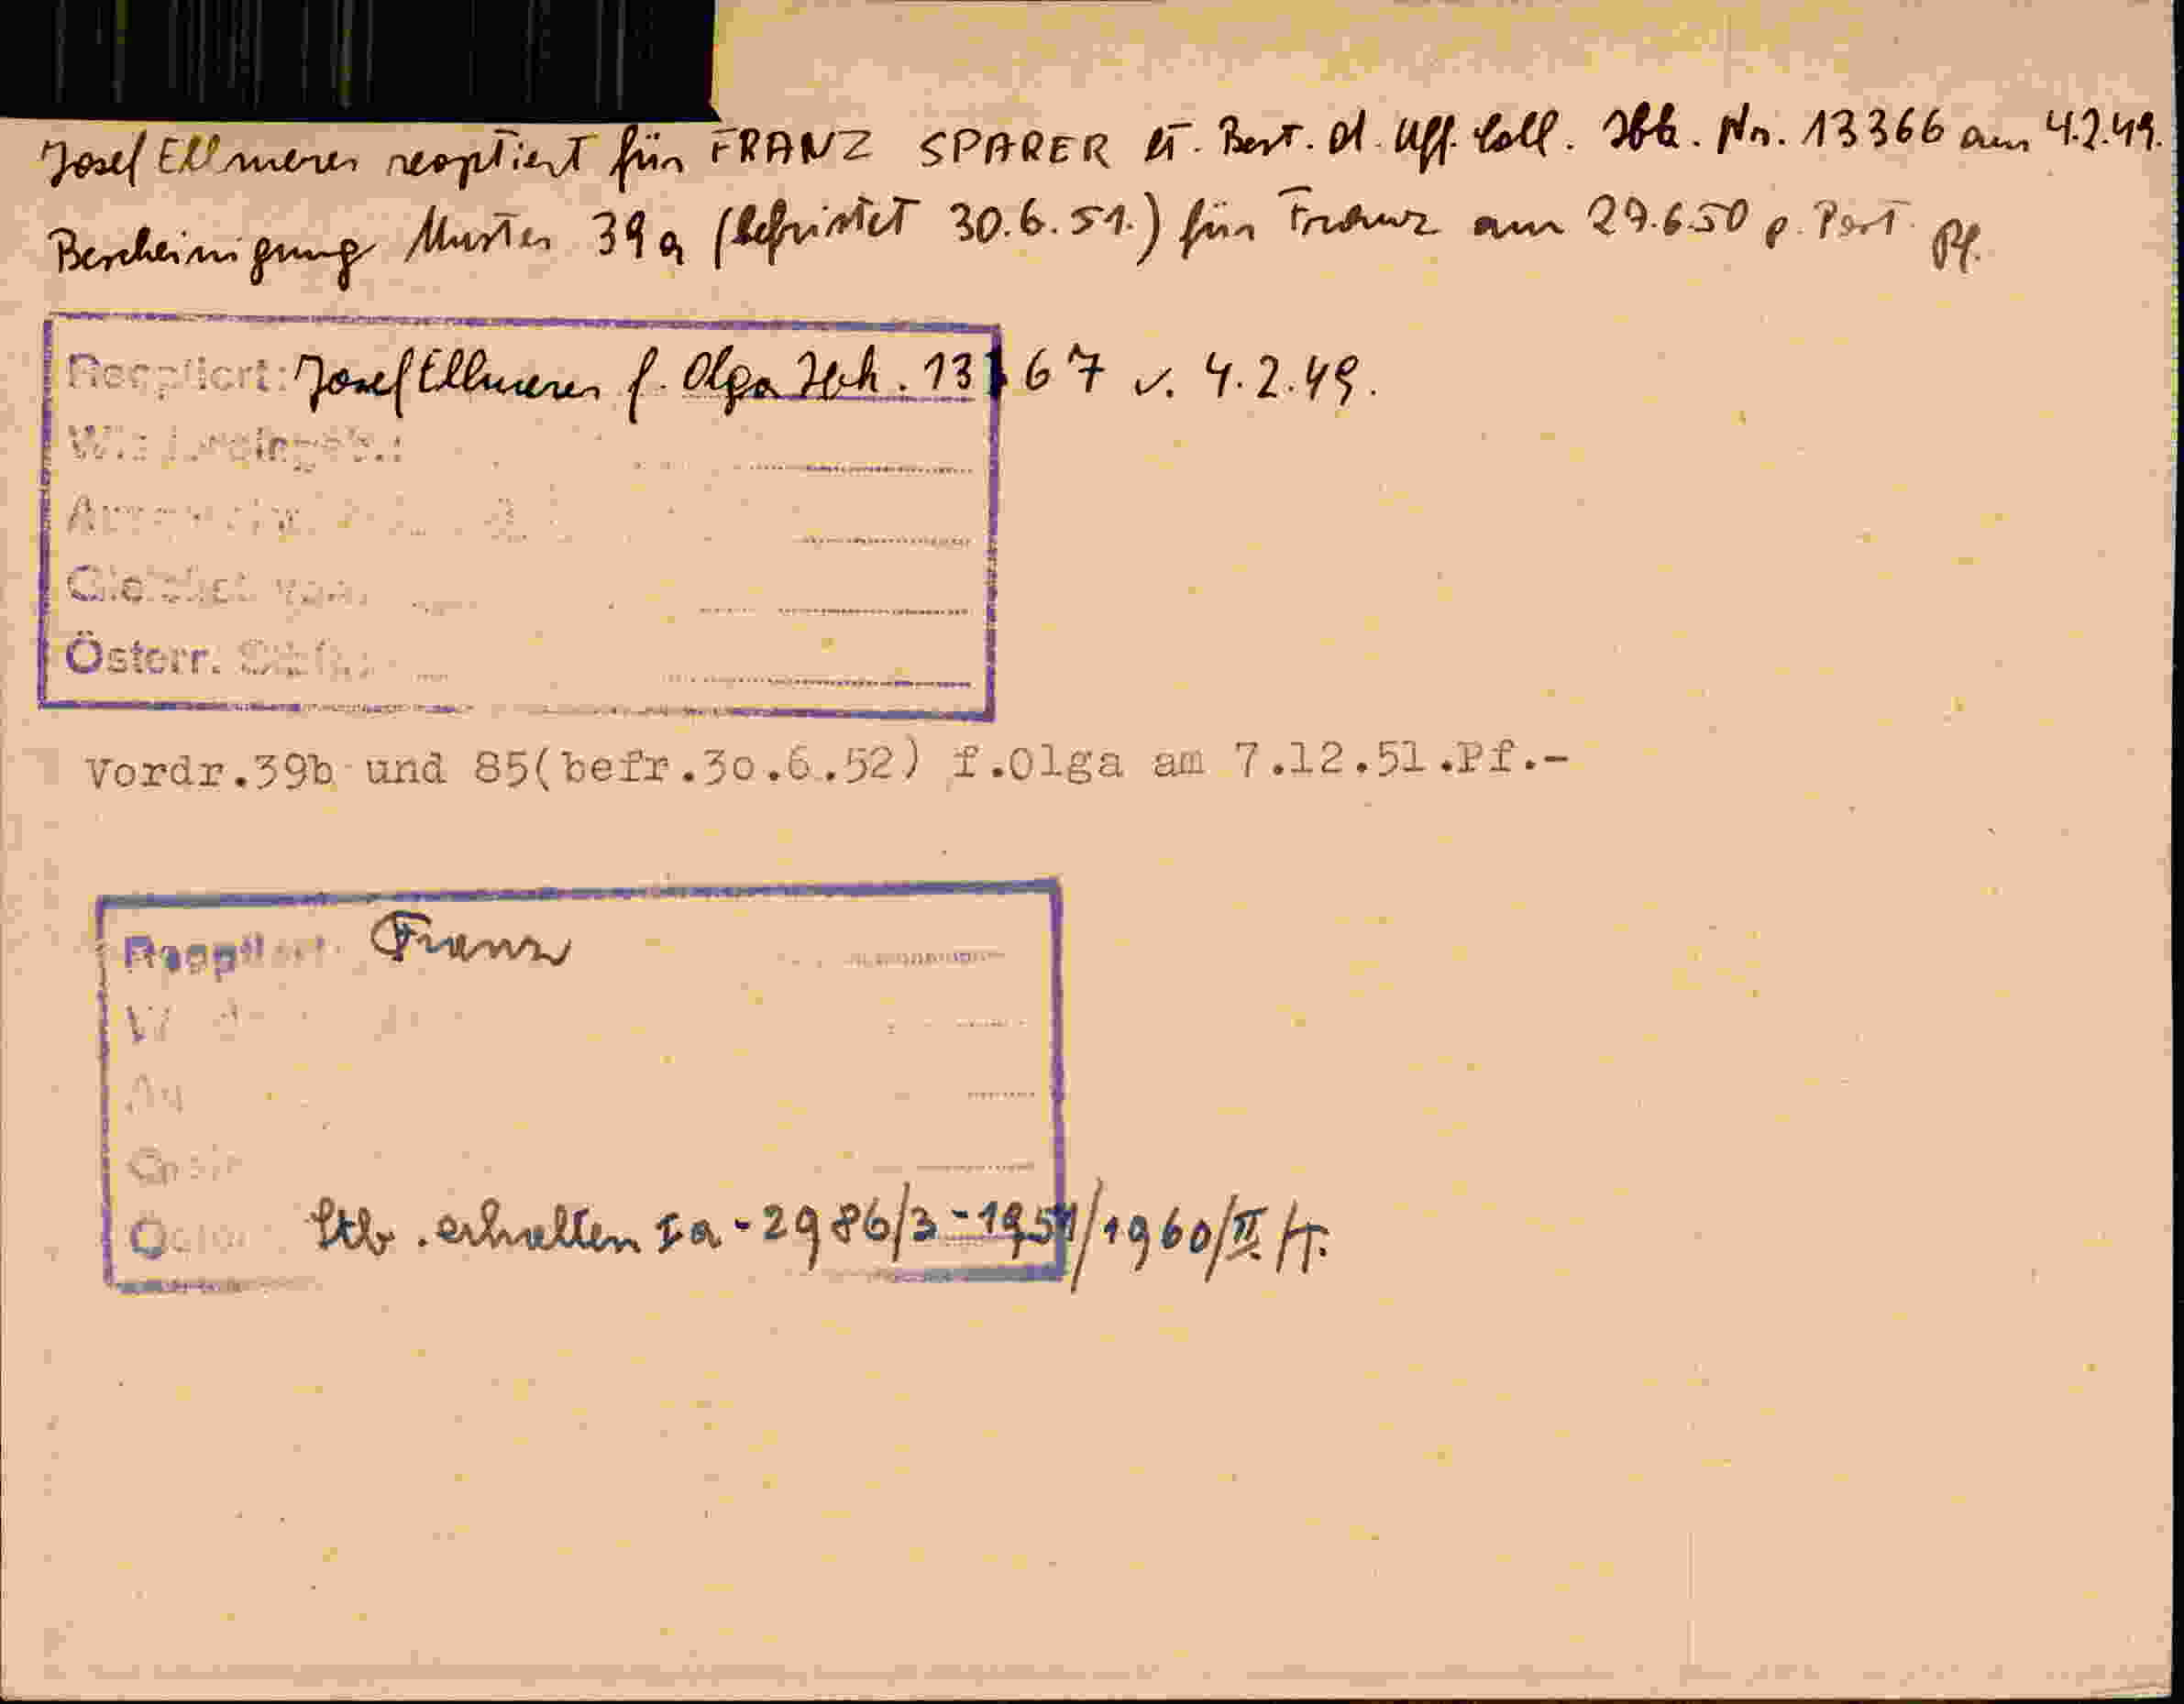 Josef Ellmerer reoptiert für FRANZ SPARER lt. Best. d. Uff. Coll. Ibk. Nr. 13366 am 4.2.49.
Bescheinigung Muster 39a (befristet 30.6.51.) für Franz am 29.6.50 p. Post. Pf.
Reoptiert: Josef Ellmerer f. Olga Ibk. 13367 v. 4.2.49.
Österr.
Vordr.39b und 85(befr.30.6.52) f.Olga am 7.12.51.Pf.-
Reoptiert: Franz
Stb. erhalten Ia-2986/3-1951/1960/II/T.